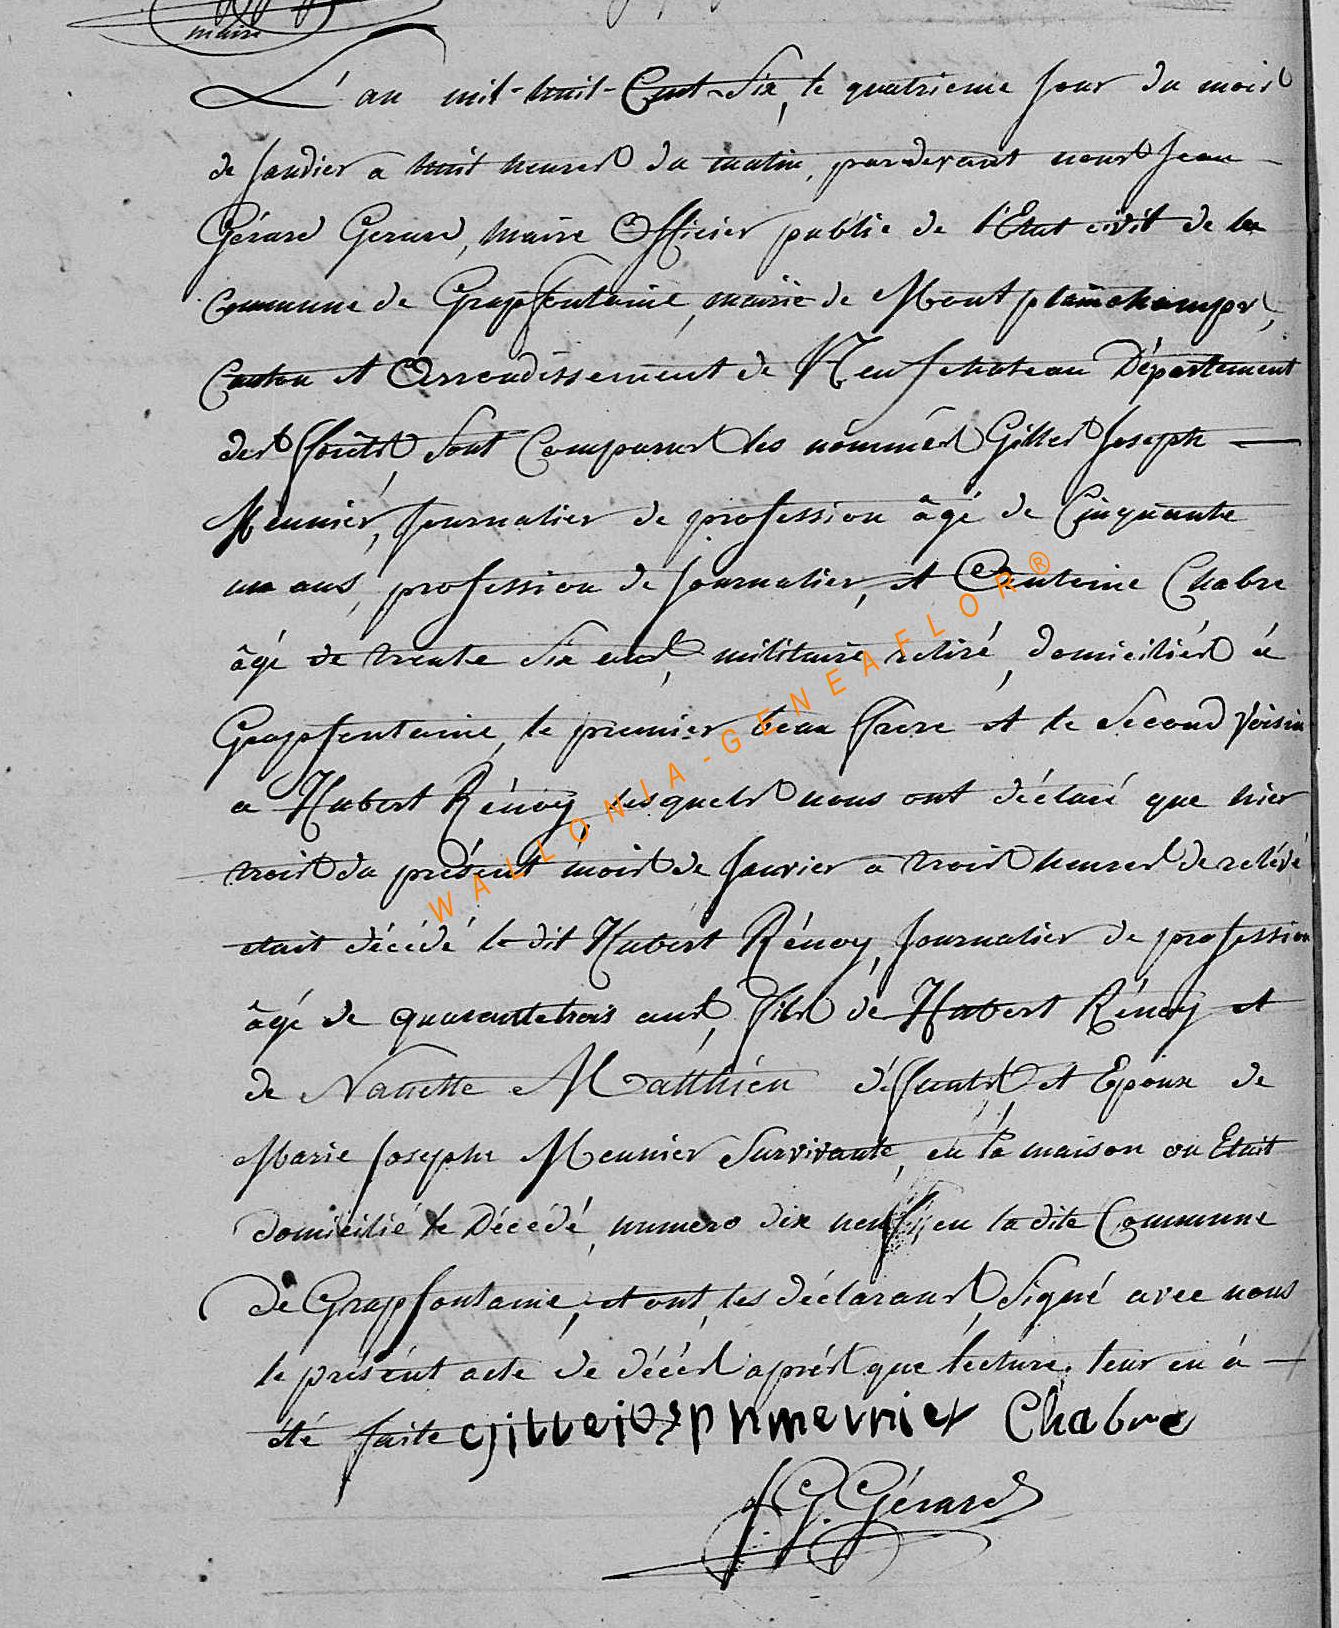 maire
L'an mil-huit-Cent-Six, le quatrieme Jour du mois
de Janvier a huit heures du matin, pardevant nous Jean
Gérard Gerard, maire Officier public de l'Etat civil de la
Commune de Grapfontaine, mairie de Montplainchamps,
Canton et Arrondissement de Neufchateau Département
des forêts, sont Comparus les nommés Gilles Joseph
Meunier, Journalier de profession âgé de Cinquante
un ans, profession de Journalier, et Antoine Chabre
âgé de trente Six ans, militaire retiré, domiciliés á
Grapfontaine, le premier beau frere et le Second Voisin
a Hubert Rénoy, lesquels nous ont déclaré que hier
trois du présent mois de Janvier a trois heures de relévé
etait décédé le dit Hubert Rénoy, Journalier de profession
âgé de quarantetrois ans, fils de Hubert Rénoy et
de Nanette Matthieu défunts et Epoux de
Marie Josephe Meunier Survivante, en la maison ou Etait
domicilié le Décédé, numero dix neuf en la dite Commune
de Grapfontaine, et ont, les déclarans, Signé avec nous
le présent acte de décés aprés que lecture leur en á
été faite gilleiosephmeunier Chabre
J. G. Gérard
WALLONIA-GENEAFLOR®